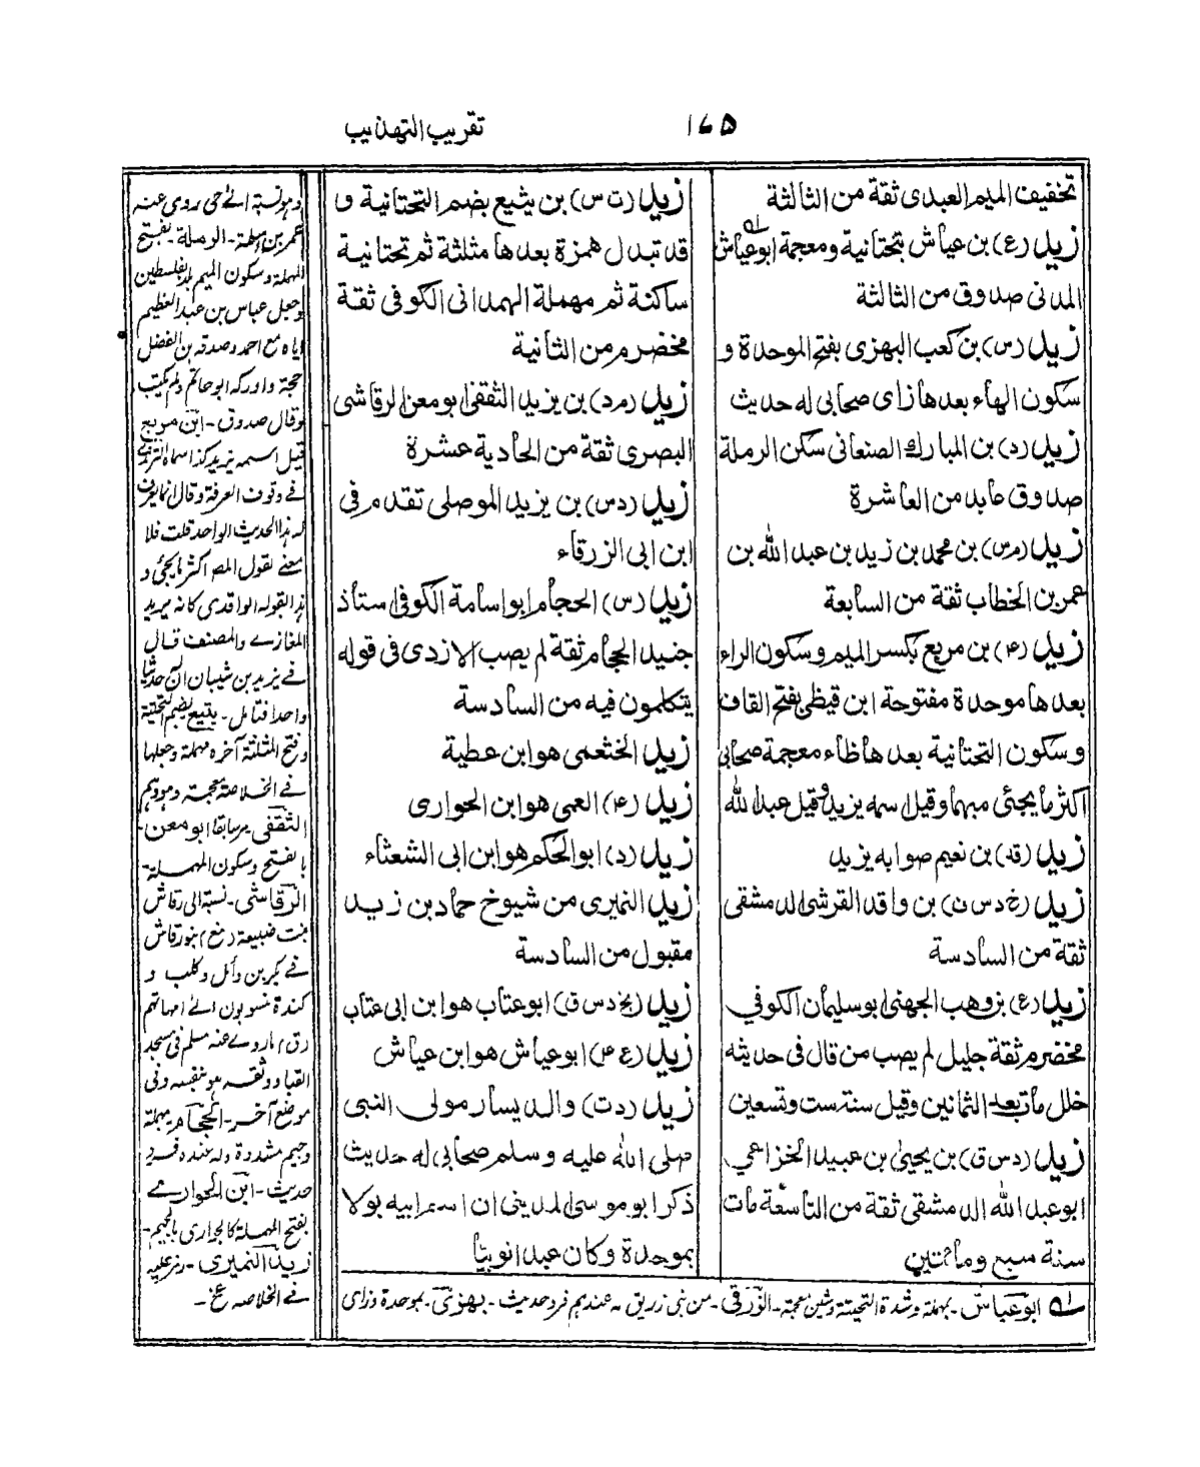 ۱۷۵
تقریب التهذیب
تخفيف الميم العبدى ثقة من الثالثة
زيد (ع) بن عياش بتحتانية ومعجمة ابوعياش
المدنى صدوق من الثالثة
زيد (س) بن كعب البهزى بفتح الموحدة و
سكون الهاء بعدها زاى صحابى له حديث
زيد (د) بن المبارك الصنعانى سكن الرملة
صدوق عابد من العاشرة
زيد (مس) بن محمد بن زيد بن عبد الله بن
عمر بن الخطاب ثقة من السابعة
زيد (۴) بن مربع بكسر الميم وسكون الراء
بعدها موحدة مفتوحة ابن قيظى بفتح القاف
وسكون التحتانية بعدها ظاء معجمة صحابى
اكثر ما يجئى مبهما وقيل اسمه يزيد وقيل عبد الله
زيد (قد) بن نعيم صوابه يزيد
زيد (خ د س ن) بن واقد القرشى الدمشقى
ثقة من السادسة
زيد (ع) بن وهب الجهنى ابو سليمان الكوفي
مخضرم ثقة جليل لم يصب من قال فى حديثه
خلل مات بعد الثمانين وقيل سنة ست وتسعين
زيد (د س ق) بن يحيى بن عبيد الخزاعي
ابو عبد الله الدمشقى ثقة من التاسعة مات
سنة سبع ومائتين
زيد (ت س) بن يثيع بضم التحتانية و
قد تبدل همزة بعدها مثلثة ثم تحتانية
ساكنة ثم مهملة الهمدانى الكوفى ثقة
مخضرم من الثانية
زيد (م د) بن يزيد الثقفى ابو معن الرقاشى
البصرى ثقة من الحادية عشرة
زيد (د س) بن يزيد الموصلى تقدم فى
ابن ابى الزرقاء
زيد (س) الحجام ابو اسامة الكوفى استاذ
جنيد الحجام ثقة لم يصب الازدى فى قوله
يتكلمون فيه من السادسة
زيد الخثعمى هو ابن عطية
زيد (۴) العمى هو ابن الحوارى
زيد (د) ابو الحكم هو ابن ابى الشعثاء
زيد النميرى من شيوخ حماد بن زيد
مقبول من السادسة
زيد (بخ د س ق) ابو عتاب هو ابن ابى عتاب
زيد (ع ۴) ابو عياش هو ابن عياش
زيد (د ت) والد يسار مولى النبى
صلى الله عليه وسلم صحابى له حديث
ذكر ابو موسى المدينى ان اسم ابيه بولا
بموحدة وكان عبدا نوبيا
وهو نسبة الى حى روى عنه
عمر بن - الرملة - بفتح
المهملة وسكون الميم بلد بفلسطين
وجعل عباس بن عبد العظيم
اياه مع احمد وصدقه بن الفضل
حجة وادركه ابو حاتم ولم يكتب
وقال صدوق - ابن مربع
قيل اسمه يزيد كذا سماه الترمذى
فى وقوف العرفة وقال انما يعرف
له هذا الحديث الواحد قلت فلا
معنى لقول المصـ اكثر ما يجئى و
هذا لقوله الواقدى كانه يريد
المغازى والمصنف قال
فى يزيد بن شيبان ان حديثا
واحدا فتامل - يثيع بضم التحتية
وفتح المثلثة آخره مهملة وجعلها
فى الخلاصة معجمة وهو وهم
الثقفى مر سابقا ابو معن -
بالفتح وسكون المهملة -
الرقاشى - نسبة الى رقاش
بنت ضبيعة (نع) بنو رقاش
فى بكر بن وائل وكلب و
كندة منسوبون الى امهاتهم
(ق) روى عنه مسلم فى مسجد
القباء ووثقه هو بنفسه وفى
موضع آخر - الحجام بمهملة
وجيم مشددة وله عنده فرد
حديث - ابن الحوارى
بفتح المهملة كالجوارى بالجيم -
زيد النميرى - رمز عليه
فى الخلاصة عخ -
له ابو عياش - بمهملة وشدة التحتية وشين معجمة - الزرقى - من بنى زريق له عندهم فرد حديث - بهزى - بموحدة وزاى